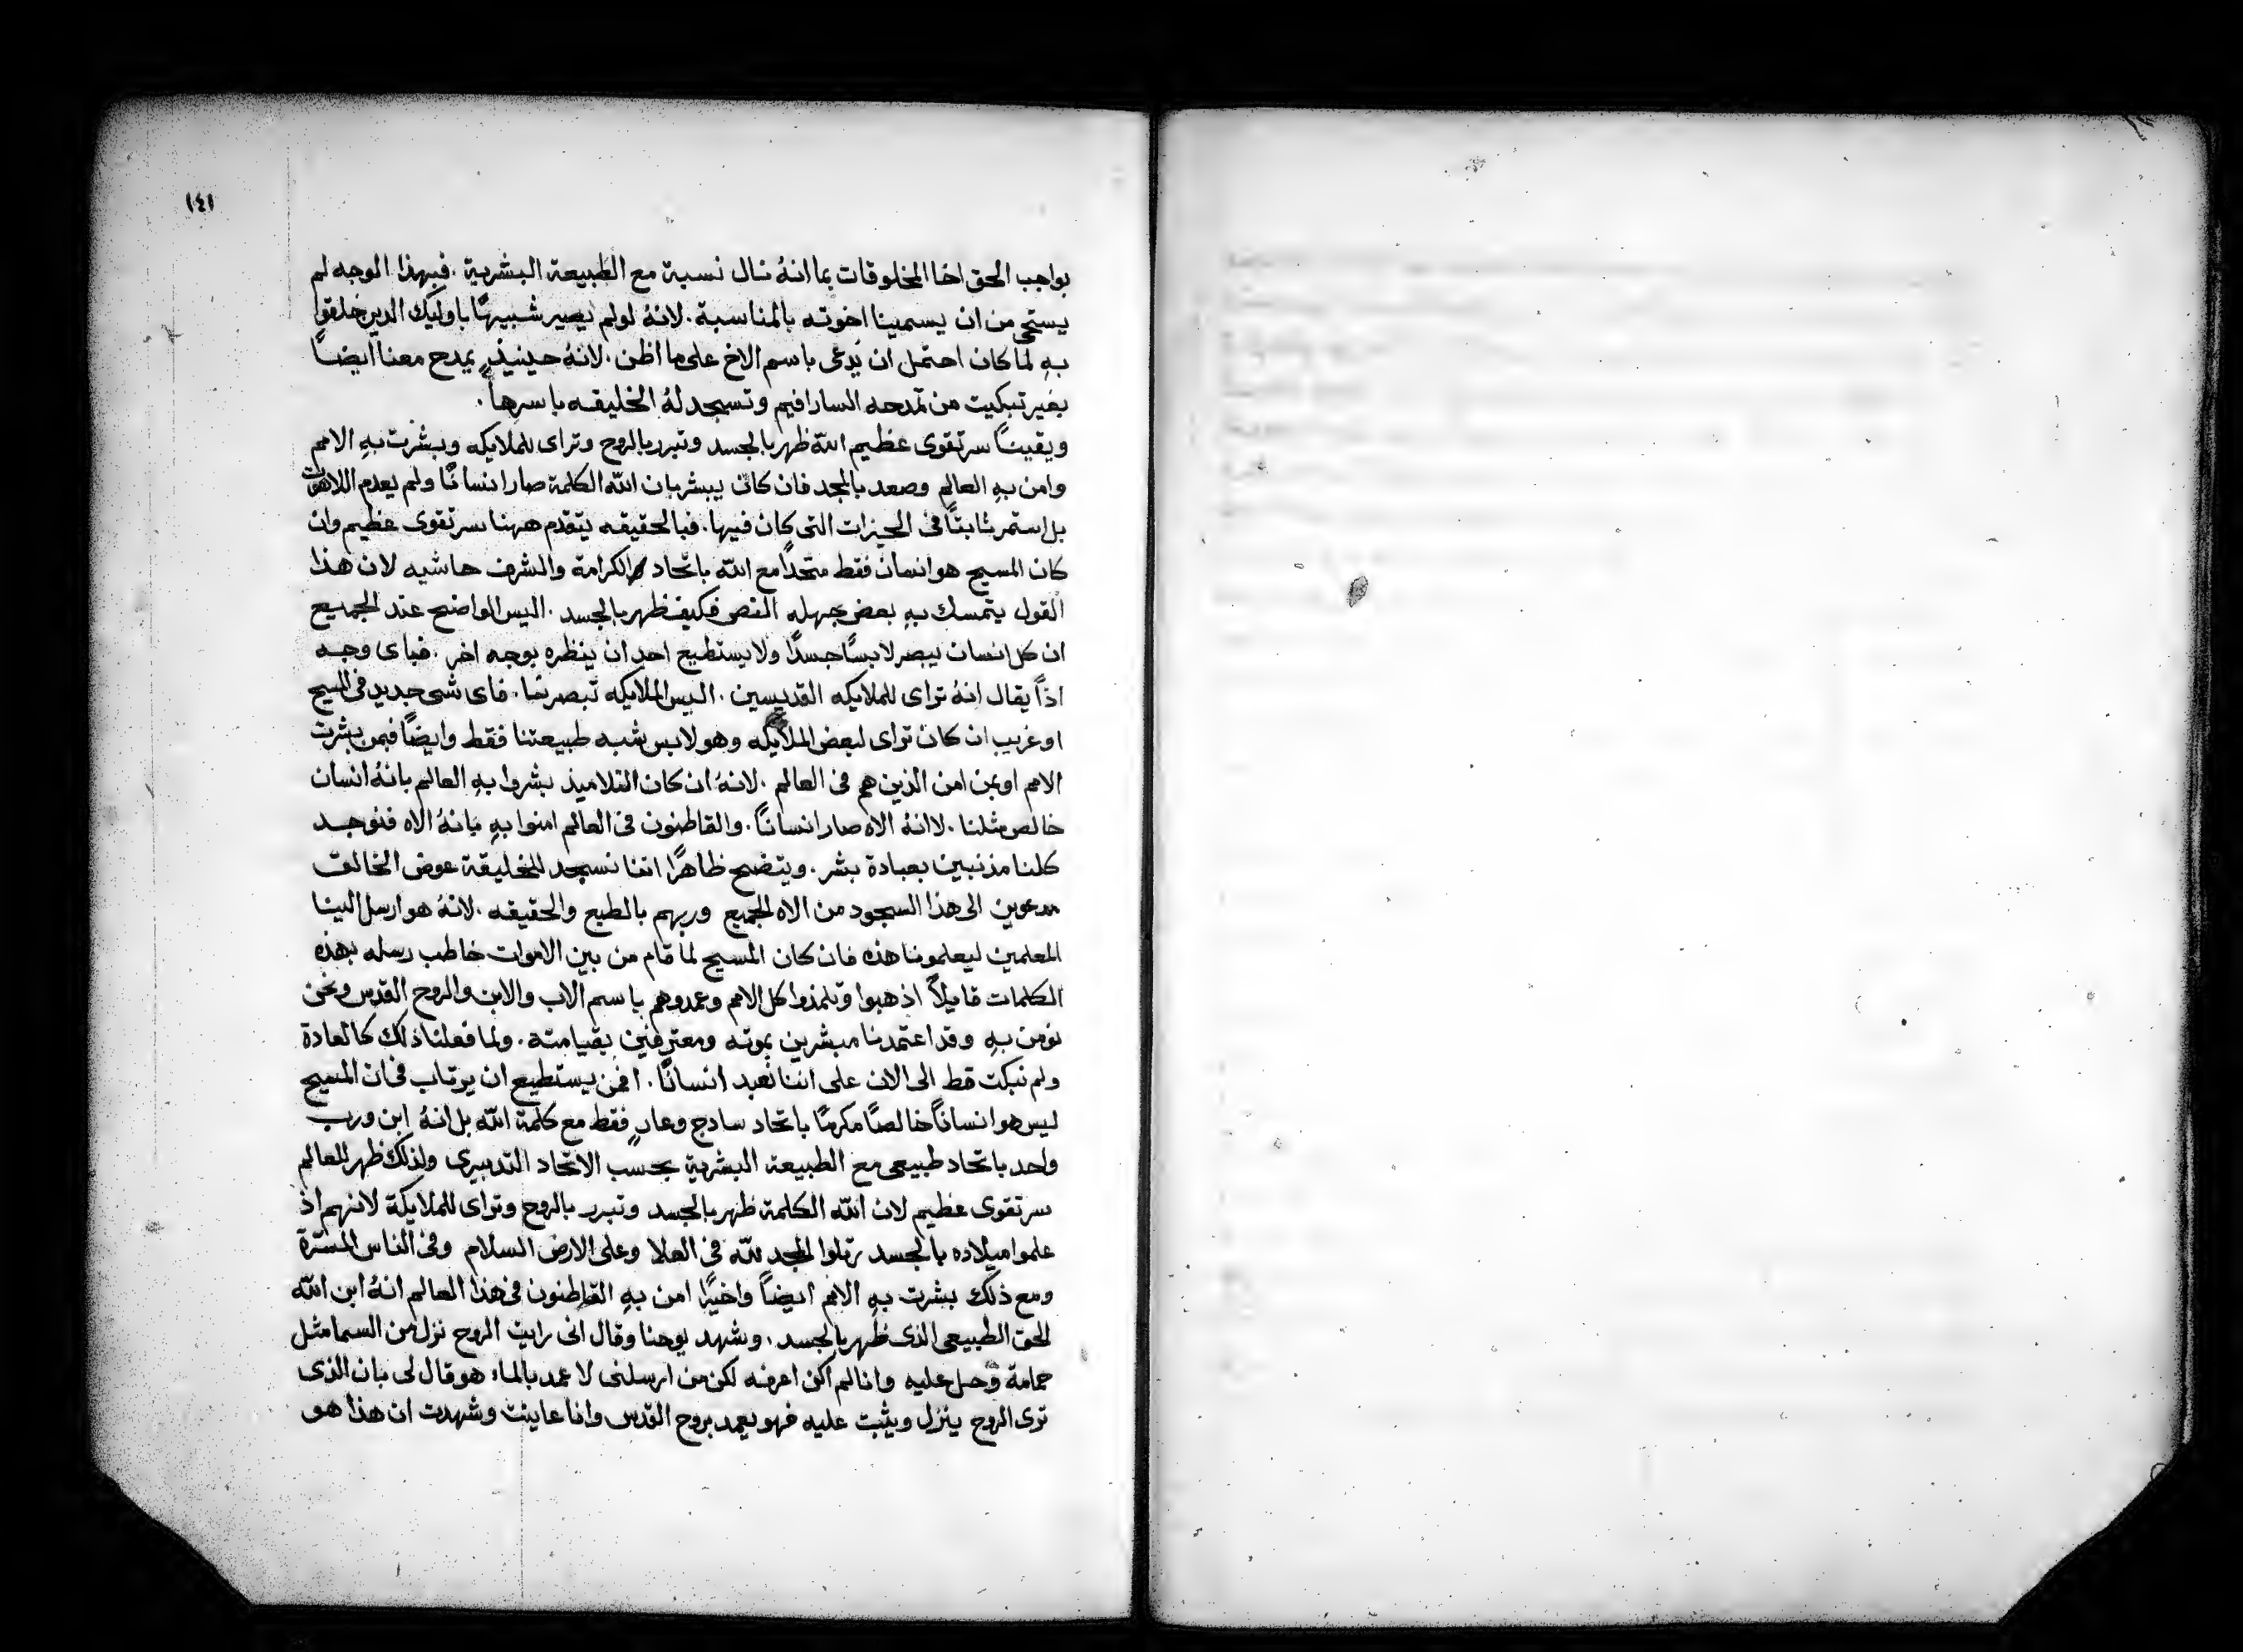 ١٤١
بواجب الحق اخا المخلوقات بما انهُ نال نسبة مع الطبيعة البشرية . فبهذا الوجه لم
يستحي من ان يسمينا اخوته بالمناسبة . لانهُ لو لم يصير شبيهًا باوليك الذين خلقوا
بهِ لما كان احتمل ان يُدعى باسم الاخ على ما اظن . لانهُ حينيذٍ يمدح معنا ايضًا
بغير تبكيت من تمدحه السارافيم وتسجد لهُ الخليقه باسرها .
ويقينًا سر تقوى عظيم اللّه ظهر بالجسد وتبرر بالروح وتراى للملايكه وبشرت بهِ الامم
وامن بهِ العالم وصعد بالمجد فان كان يبشر بان اللّه الكلمة صار انسانًا ولم يعدم اللاهوت
بل استمر ثابتًا فى الحيزات التى كان فيها . فبالحقيقه يتقدم ههنا سر تقوى عظيم وان
كان المسيح هو انسان فقط متحدًا مع اللّه باتحاد الكرامة والشرف حاشيه لان هذا
القول يتمسك بهِ بعض جهله النص فكيف ظهر بالجسد . اليس الواضح عند الجميع
ان كل انسان يبصر لابسًا جسدًا ولا يستطيع احد ان ينظره بوجه اخر . فباى وجه
اذًا يقال انهُ تراى للملايكه القديسين . اليس الملايكه تبصرنا . فاى شى جديد فى المسيح
او غريب ان كان تراى لبعض الملايكه وهو لابس شبه طبيعتنا فقط وايضًا فبمن بشرت
الامم او بمن امن الذين هم فى العالم . لانهُ ان كان التلاميذ بشروا بهِ العالم بانهُ انسان
خالص مثلنا . لا انهُ الاه صار انسانًا . والقاطنون فى العالم امنوا بهِ بانهُ الاه فنوجد
كلنا مذنبين بعبادة بشر . ويتضح ظاهرًا اننا نسجد للخليقة عوض الخالق
مدعوين الى هذا السجود من الاه الجميع وربهم بالطبع والحقيقه . لانهُ هو ارسل الينا
المعلمين ليعلمونا هذه فان كان المسيح لما قام من بين الاموات خاطب رسله بهذه
الكلمات قايلاً اذهبوا وتلمذوا كل الامم وعمدوهم باسم الاب والابن والروح القدس ونحن
نومن بهِ وقد اعتمدنا مبشرين بموته ومعترفين بقيامته . ولما فعلنا ذلك كالعادة
ولم نبكت قط الى الان على اننا نعبد انسانًا . افمن يستطيع ان يرتاب فى ان المسيح
ليس هو انسانًا خالصًا مكرمًا باتحاد سادج وعارٍ فقط مع كلمة اللّه بل انهُ ابن ورب
واحد باتحاد طبيعى مع الطبيعة البشرية بحسب الاتحاد التدبيرى ولذلك ظهر للعالم
سر تقوى عظيم لان اللّه الكلمة ظهر بالجسد وتبرر بالروح وتراى للملايكة لانهم اذ
علموا ميلاده بالجسد رتلوا المجد للّه فى العلا وعلى الارض السلام وفى الناس المسرة
ومع ذلك بشرت بهِ الامم ايضًا واخيرًا امن بهِ القاطنون فى هذا العالم انهُ ابن اللّه
الحق الطبيعى الذى ظهر بالجسد . وشهد يوحنا وقال انى رايت الروح نزل من السما مثل
حمامة وحل عليه وانا لم اكن اعرفه لكن من ارسلنى لاعمد بالماء هو قال لى بان الذى
ترى الروح ينزل ويثبت عليه فهو يعمد بروح القدس وانا عاينت وشهدت ان هذا هو